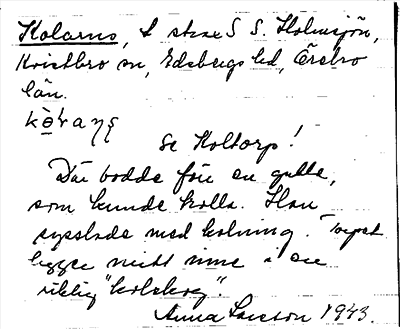 Kolarns, t stuxe S S. Holmsjön,
Kvistbro sn, Edsbergs hd, Örebro
län.
kò̱raɳʂ
Se Koltorp!
Där bodde förr en gubbe,
som kunde kolla. Han
sysslade med kolning. Torpet
ligger mitt inne i en
riktig "kolskog".
Anna Larsson 1943.